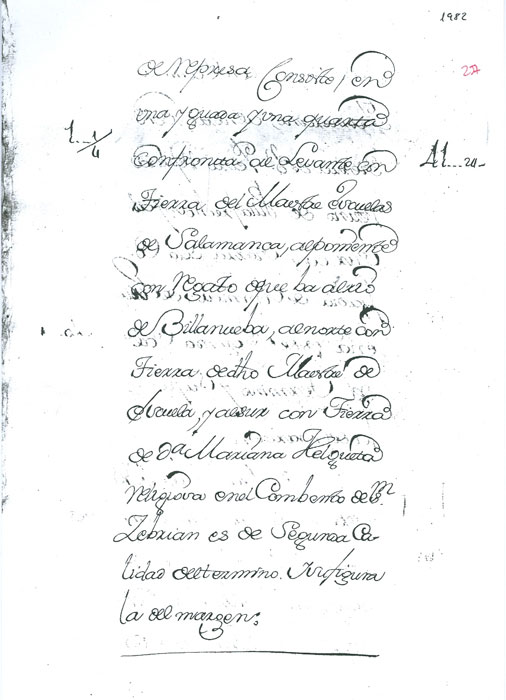 1982
27
de N. represa Consiste, en
una yguada y una quarta
1 1/4
confronta al Levante con
Tierra del Maestre Escuela
de Salamanca, al poniente
con Regato que ba al rio
de Billanueba, al norte con
Tierra de dho Maestre de
Escuela, y al sur con Tierra
de d.ª Mariana Helgueta
religiosa en el Combento de S.n
Zebrian es de Segunda Ca-
lidad del termino. Su figura
la del margen;